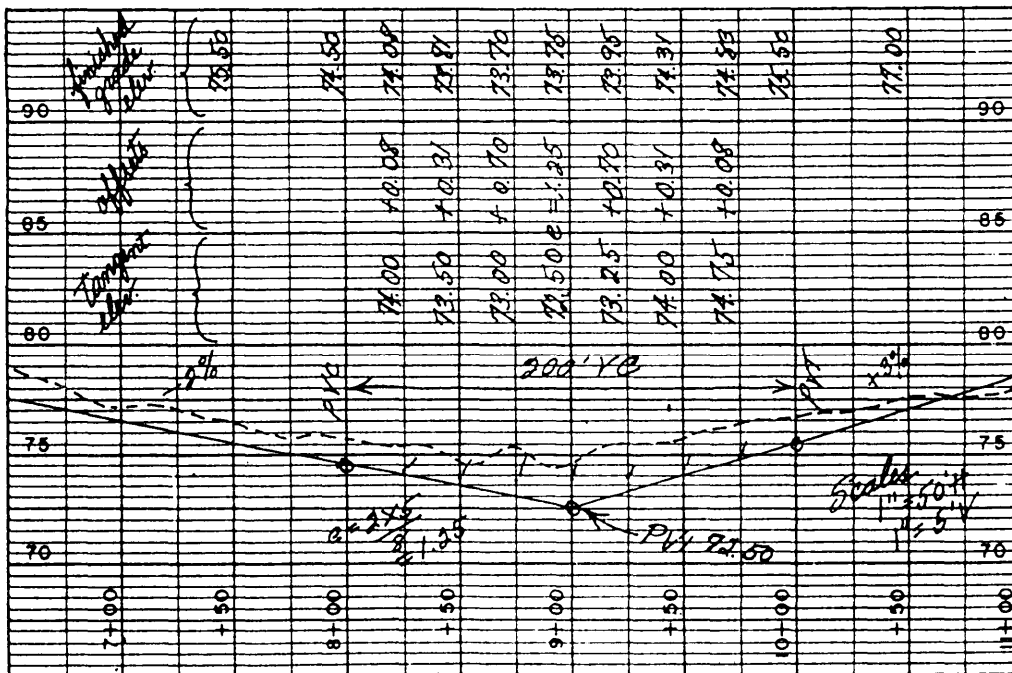 finished
grade
elev.
75.50
74.50
74.08
73.81
73.70
73.75
73.95
74.31
74.83
75.50
77.00
90
90
offsets
+0.08
+0.31
+0.70
e=1.25
+0.70
+0.31
+0.08
85
85
Tangent
elev.
74.00
73.50
73.00
72.50
73.25
74.00
74.75
80
80
-2%
PVC
200' VC
PVT
+3%
75
75
e = 2×5
8
= 1.25
PVI 72.50
Scales
1" = 50' H
1" = 5' V
70
70
7+00
+50
8+00
+50
9+00
+50
10+00
+50
11+00